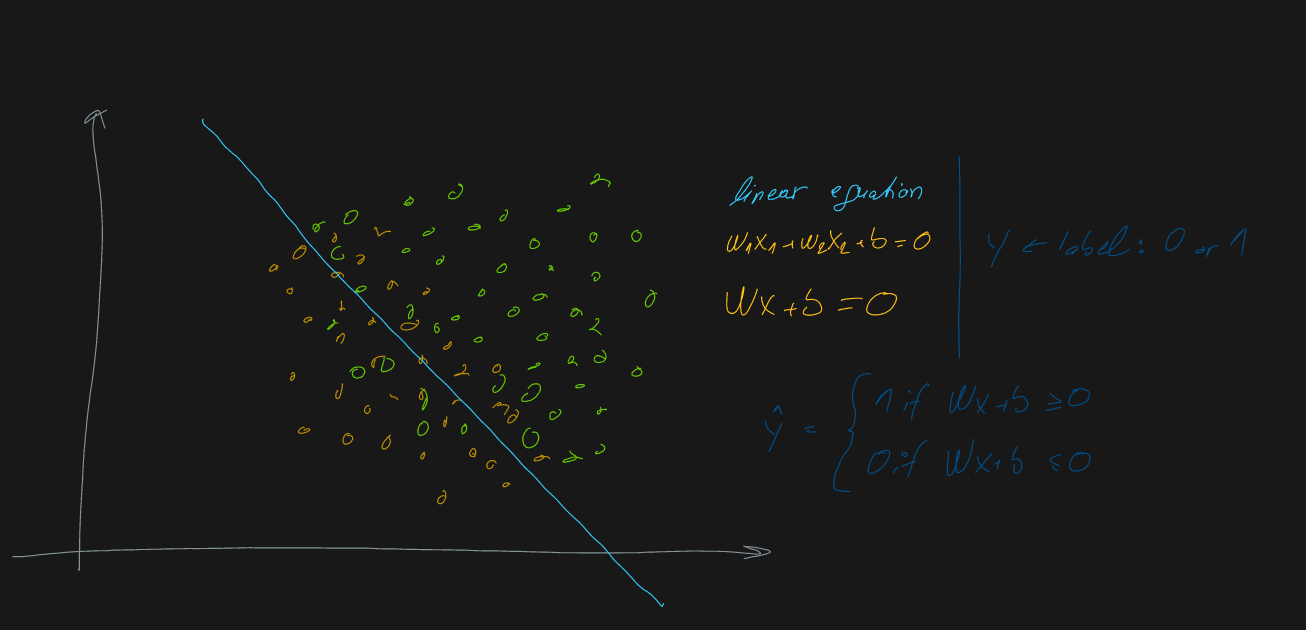 linear equation
w₁x₁+w₂x₂+b=0
Wx+b=0
y ← label: 0 or 1
ŷ = { 1 if Wx+b ≥0
0 if Wx+b ≤0